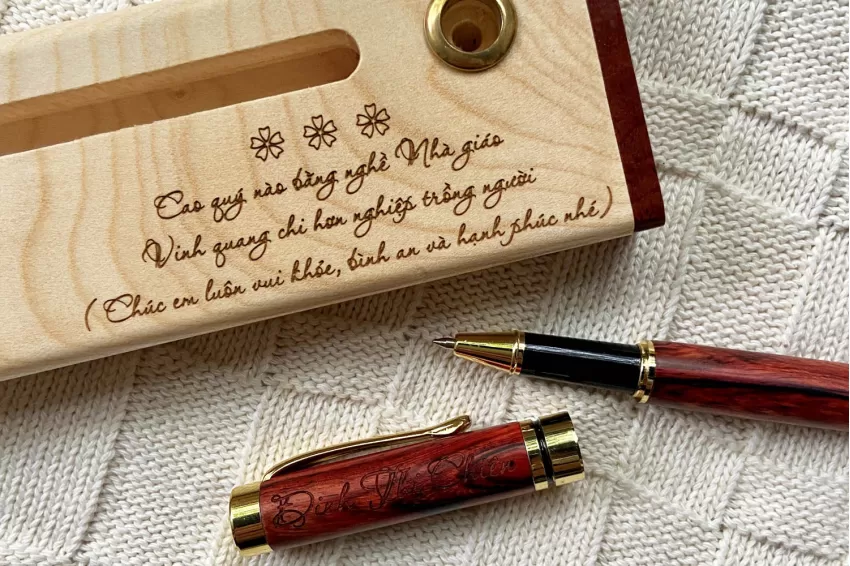 Cao quý nào bằng nghề Nhà giáo
Vinh quang chi hơn nghiệp trồng người
(Chúc em luôn vui khỏe, bình an và hạnh phúc nhé)
Đinh Thị